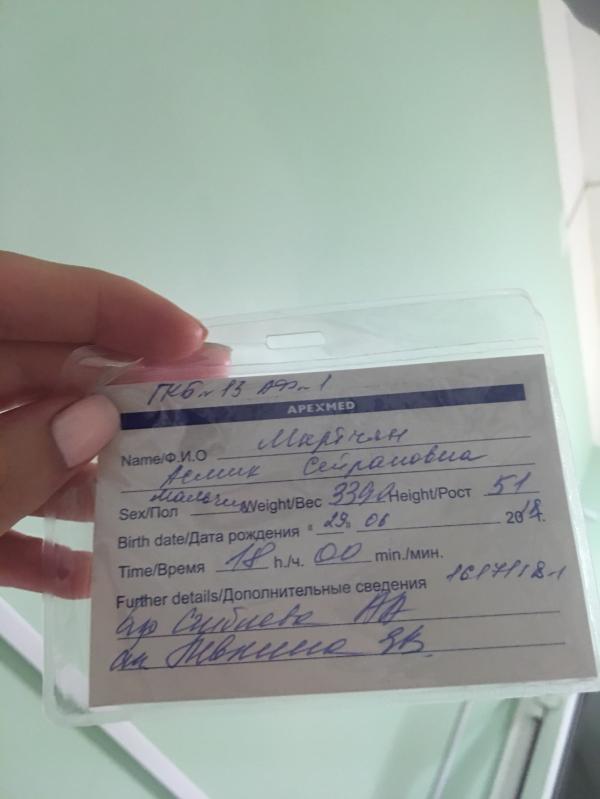 ГКБ № 13 АФ - 1
APEXMED
Name/Ф.И.О Мартчян
Асмик Сейрановна
Sex/Пол мальчик Weight/Вес 3390 Height/Рост 51
Birth date/Дата рождения " 29. 06 2018 г.
Time/Время 18 h./ч. 00 min./мин.
Further details/Дополнительные сведения
АА